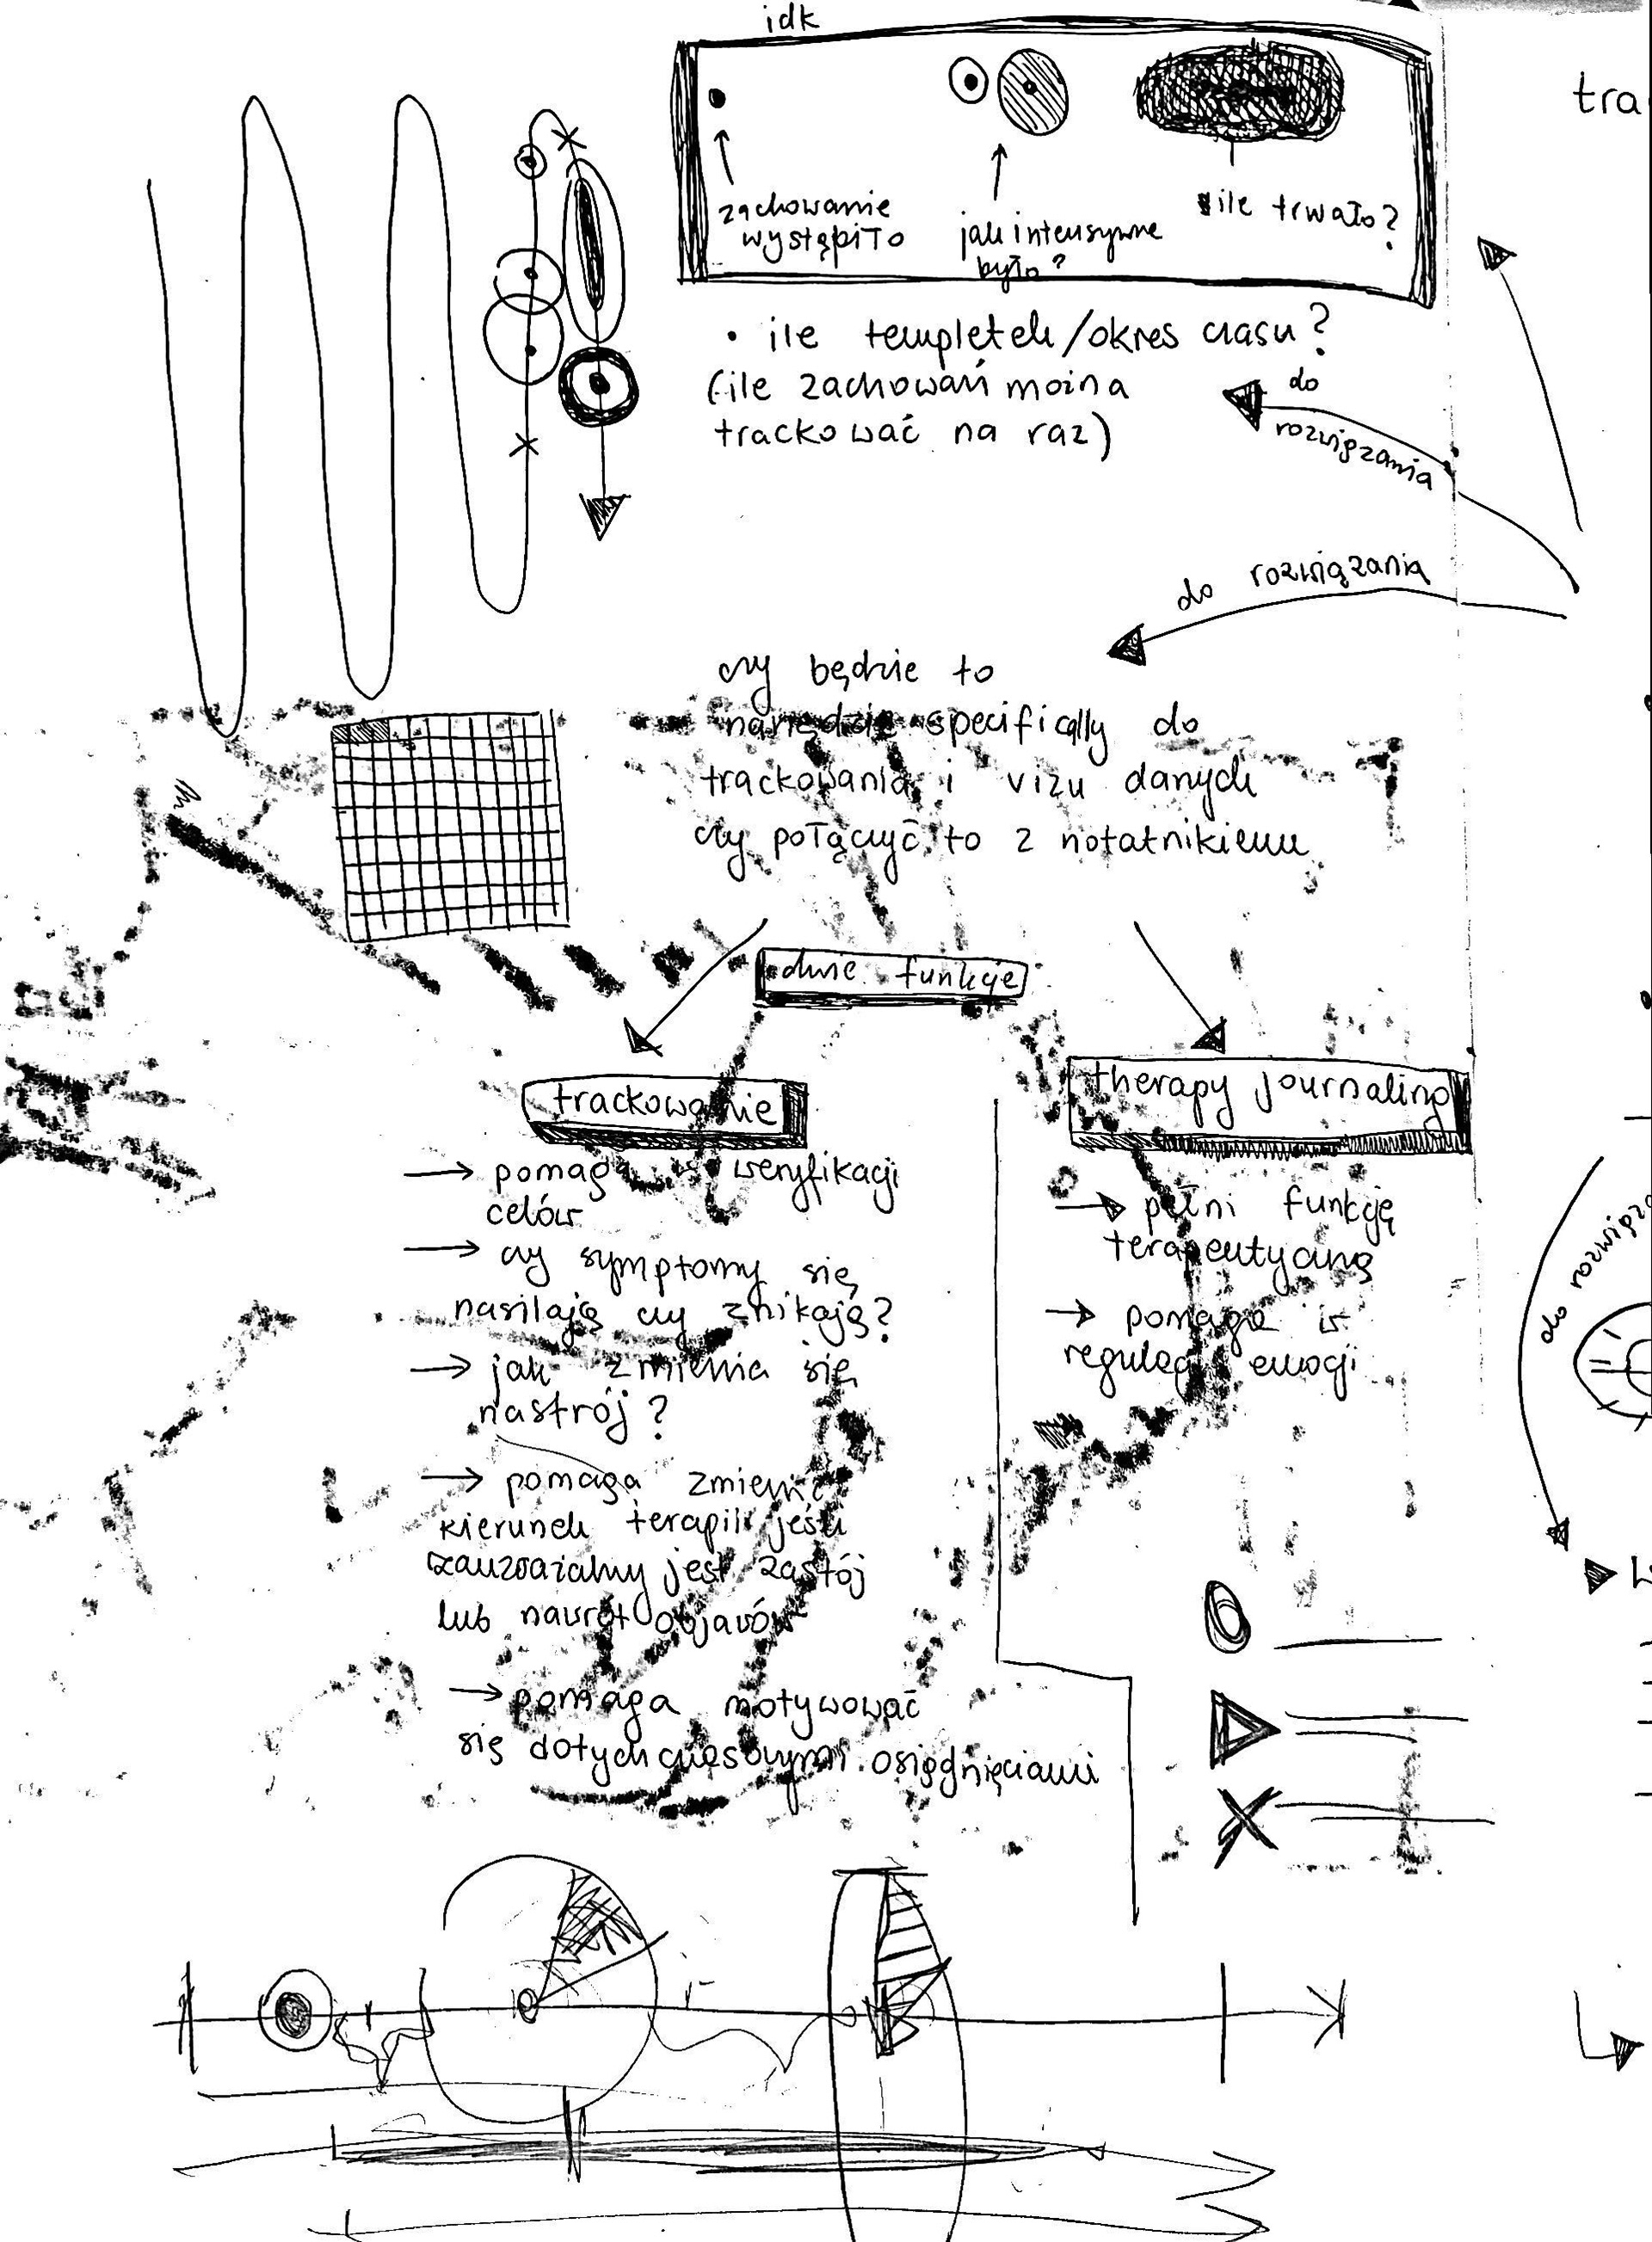 idk
tra
zachowanie
wystąpiło
jak intensywne
było?
ile trwało?
• ile templetek/okres czasu?
(ile zachowań można
trackować na raz)
do
rozwiązania
do rozwiązania
czy będzie to
narzędzie specifically do
trackowania i vizu danych
czy połączyć to z notatnikiem
dwie funkcje
trackowanie
→ pomaga w weryfikacji
celów
→ czy symptomy się
nasilają czy znikają?
→ jak zmienia się
nastrój?
→ pomaga zmienić
kierunek terapii jeśli
zauważalny jest zastój
lub nawrót objawów
→ pomaga motywować
się dotychczasowymi osiągnięciami
therapy journaling
→ pełni funkcję
terapeutyczną
→ pomaga w
regulacji emocji
do rozwiąza